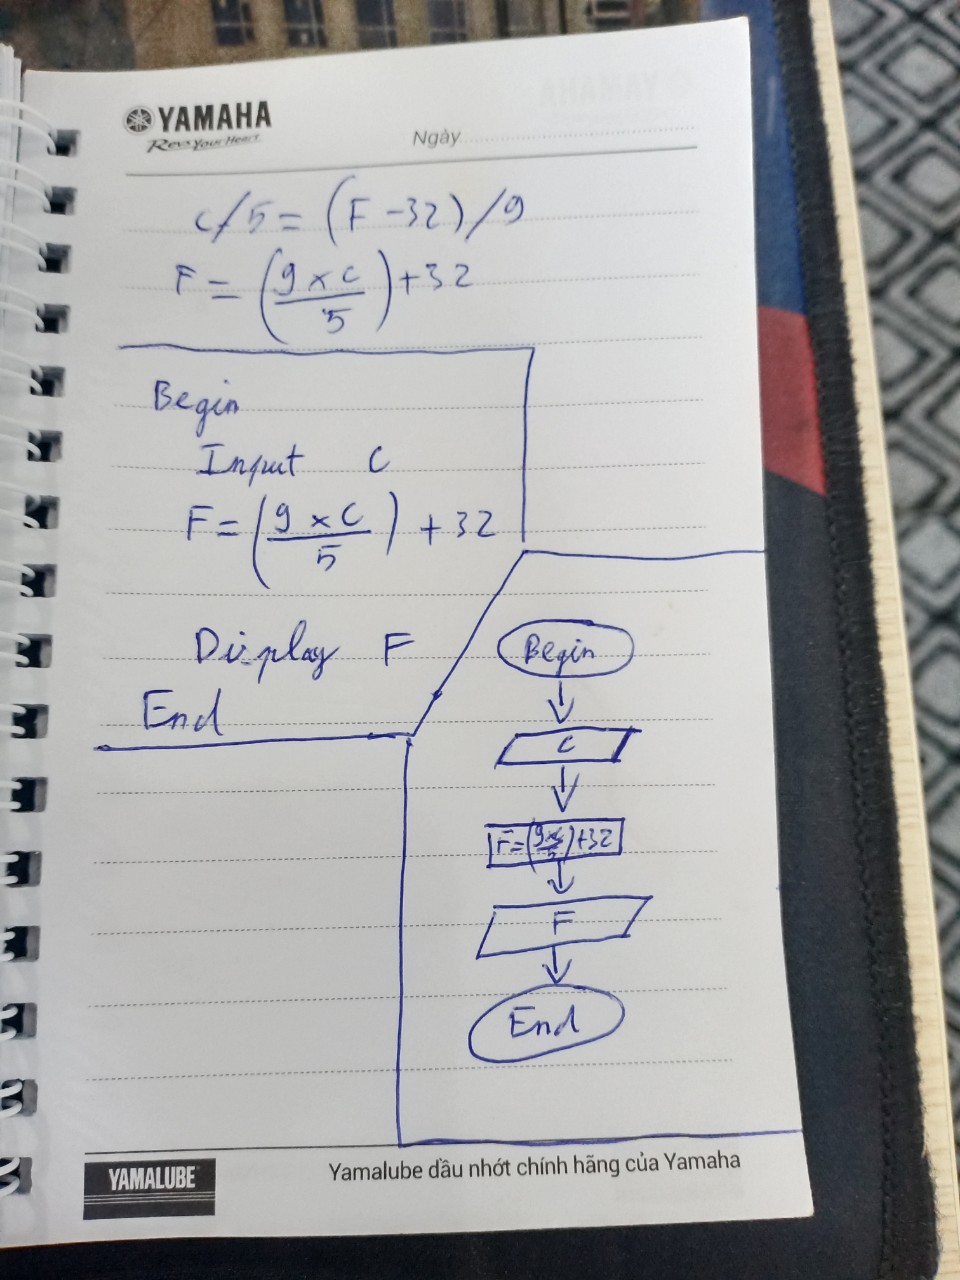 YAMAHA
Revs Your Heart
Ngày
C/5 = (F - 32) / 9
F = (9 x C / 5) + 32
Begin
Input C
F = (9 x C / 5) + 32
Display F
End
Begin
C
F = (9 x C / 5) + 32
F
End
YAMALUBE
Yamalube dầu nhớt chính hãng của Yamaha